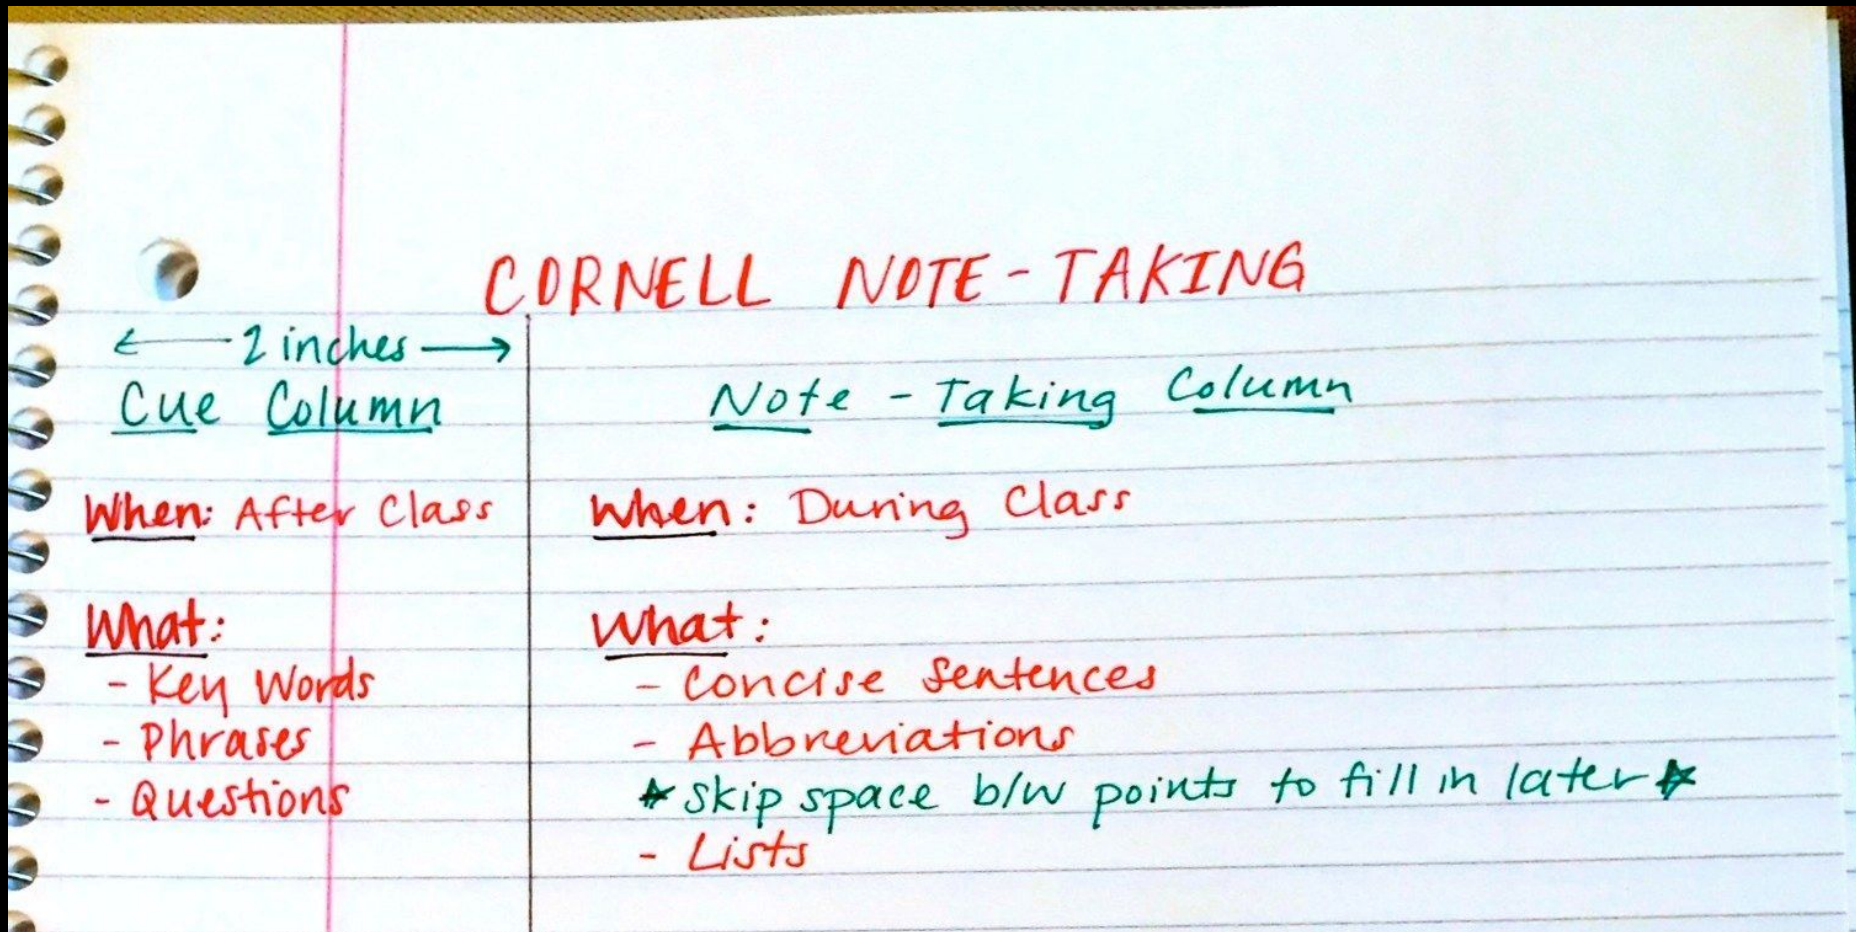 CORNELL NOTE-TAKING
← 2 inches →
Cue Column
When: After Class
What:
- Key Words
- Phrases
- Questions
Note-Taking Column
When: During Class
What:
- Concise Sentences
- Abbreviations
★ Skip space b/w points to fill in later ★
- Lists